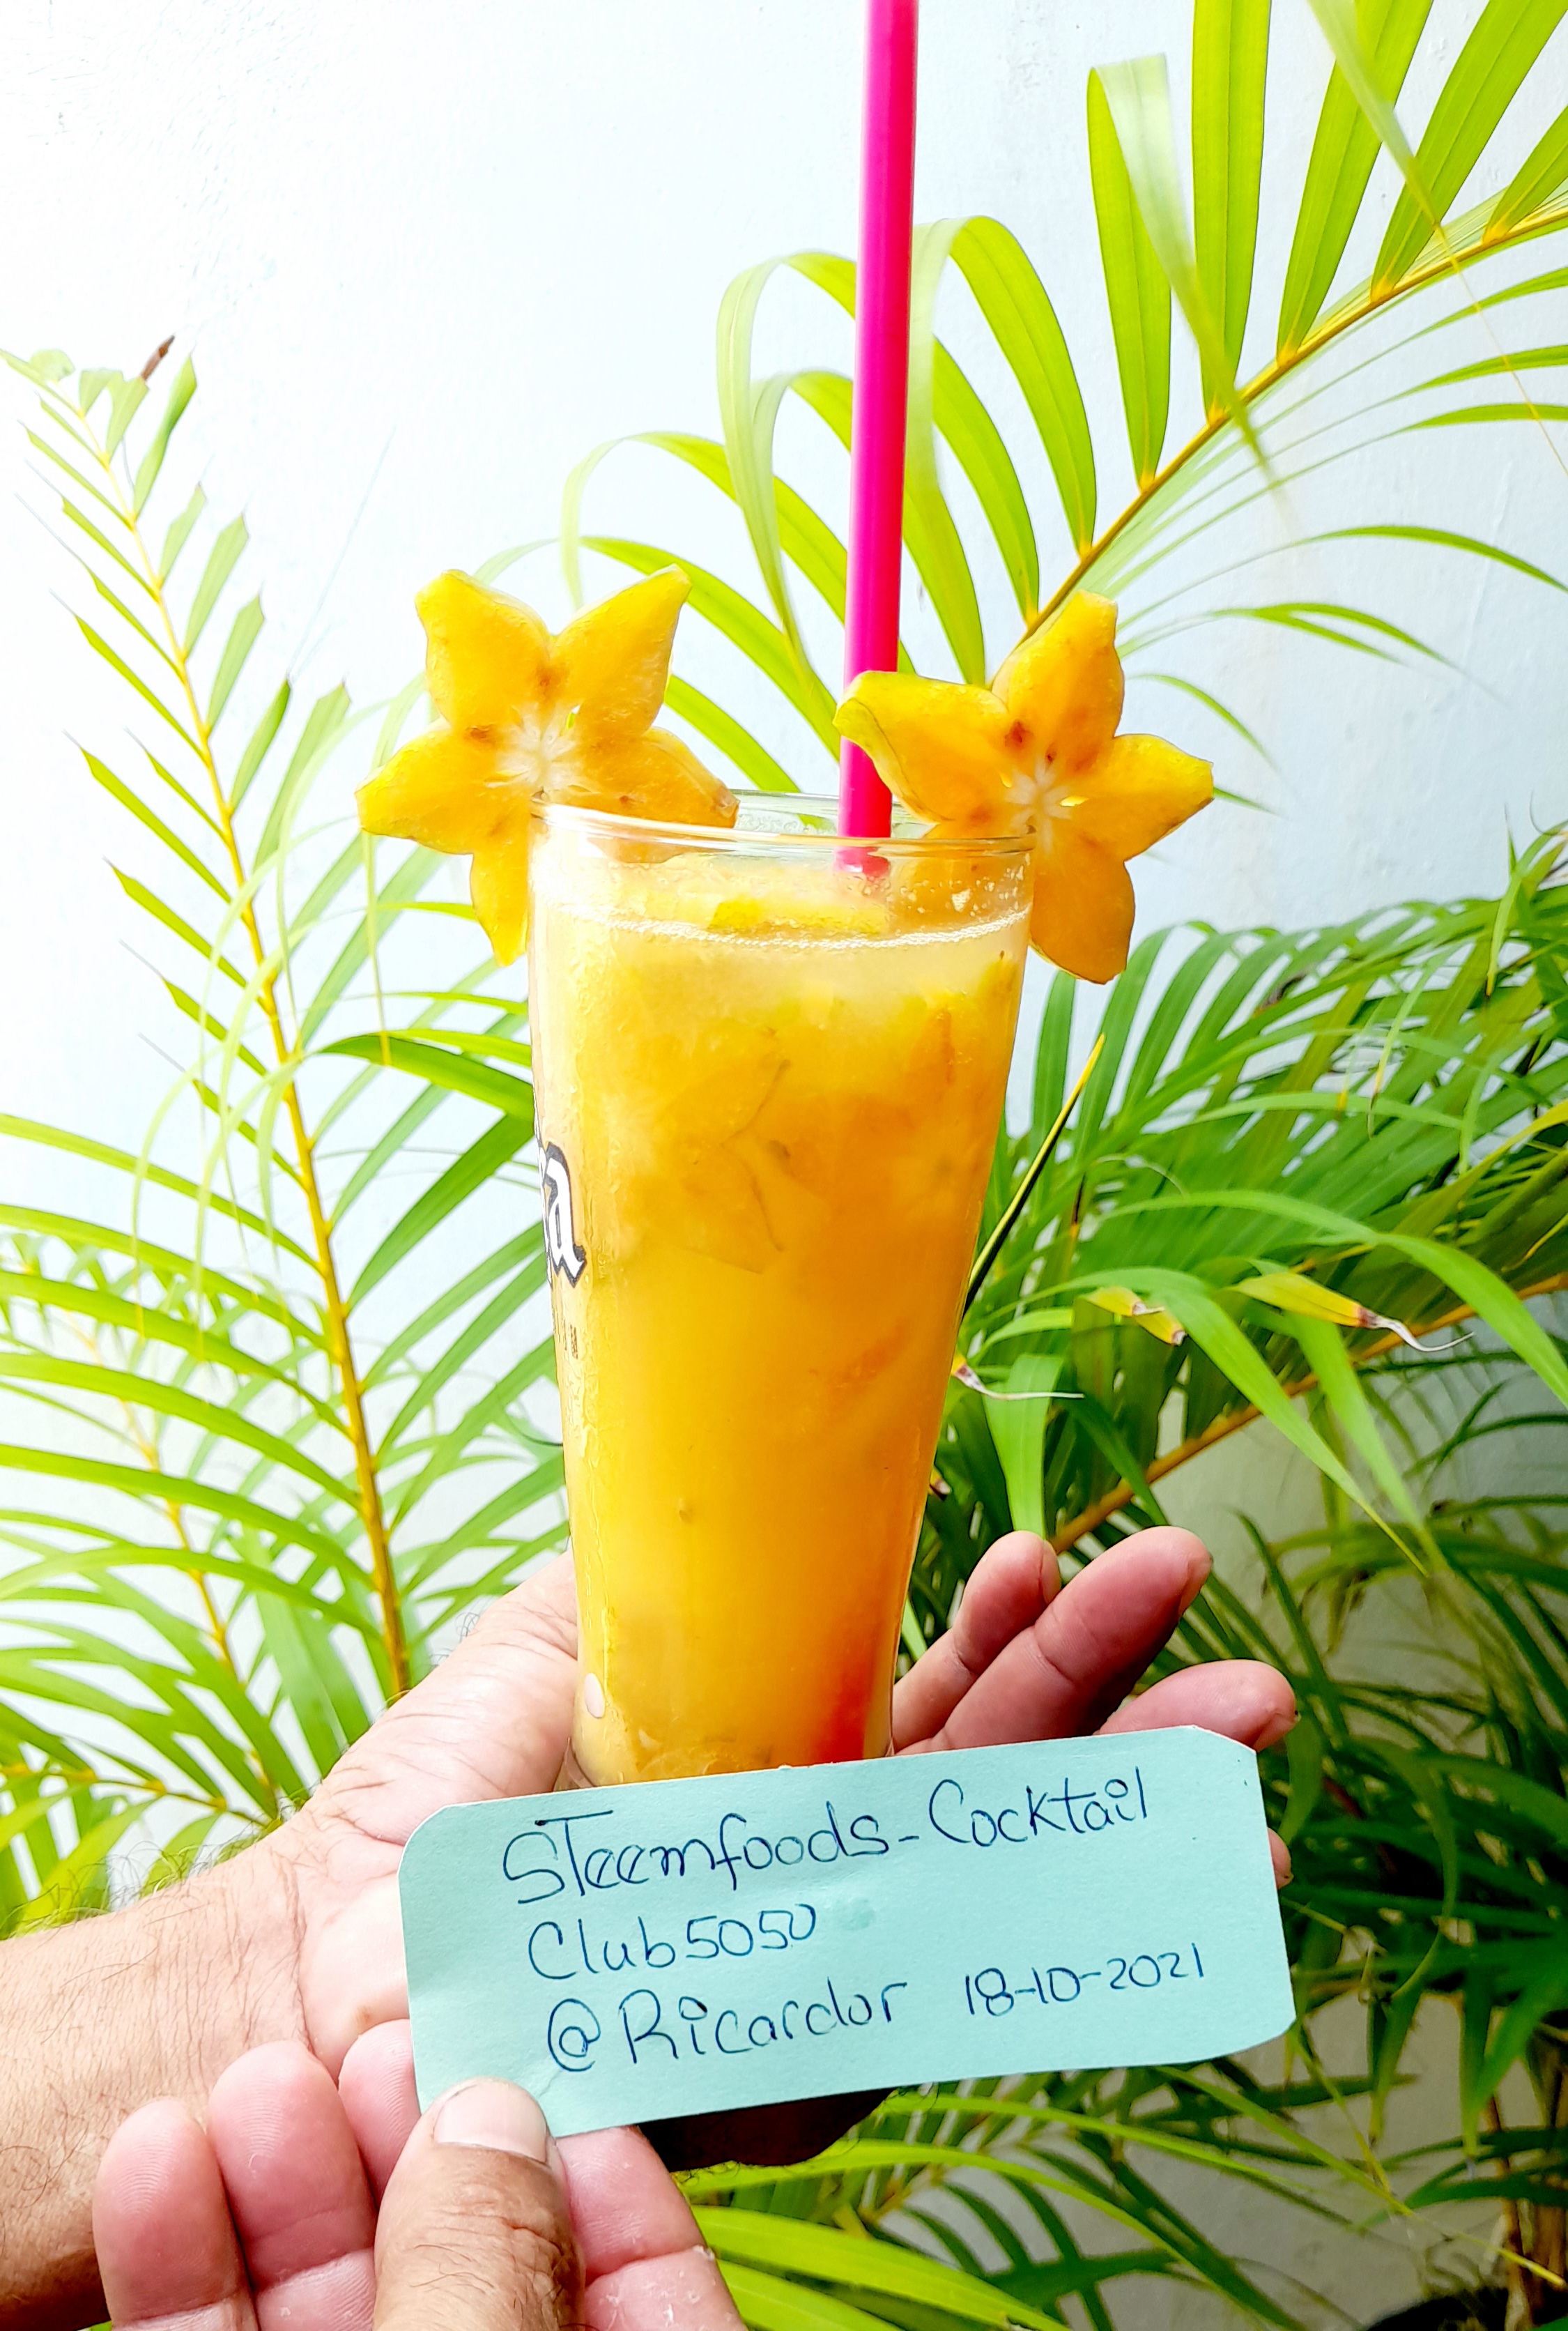 STeemfoods-Cocktail
Club5050
@Ricardor 18-10-2021